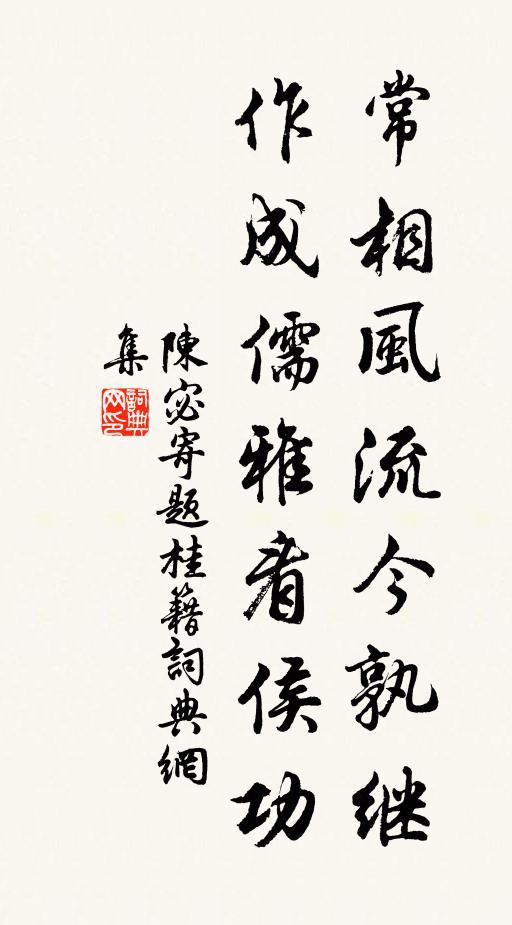 常相風流今孰继
作成儒雅者侯功
陳宓寄题桂籍詞典網
集
詞典網印